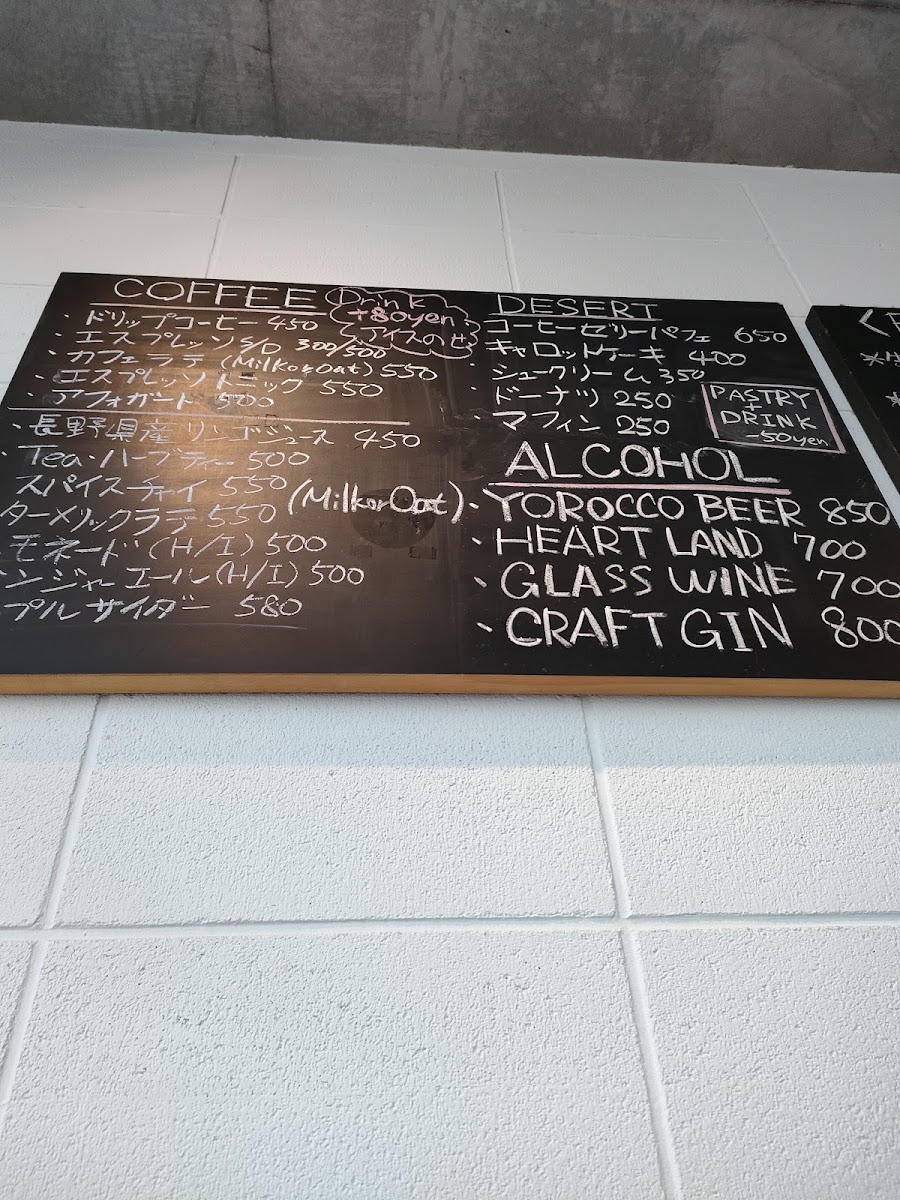 COFFEE
・ドリップコーヒー 450
・エスプレッソ S/D 300/500
・カフェラテ (Milk or Oat) 550
・エスプレッソトニック 550
・アフォガート 500
Drink
+80yen
アイスのせ
・長野県産 リンゴジュース 450
・Tea・ハーブティー 500
スパイスチャイ 550 (Milk or Oat)
ターメリックラテ 550
モネード (H/I) 500
ンジャーエール (H/I) 500
プルサイダー 580
DESERT
・コーヒーゼリーパフェ 650
・キャロットケーキ 400
・シュークリーム 350
・ドーナツ 250
・マフィン 250
PASTRY
+
DRINK
-50yen
ALCOHOL
・YOROCCO BEER 850
・HEART LAND 700
・GLASS WINE 700
・CRAFT GIN 800